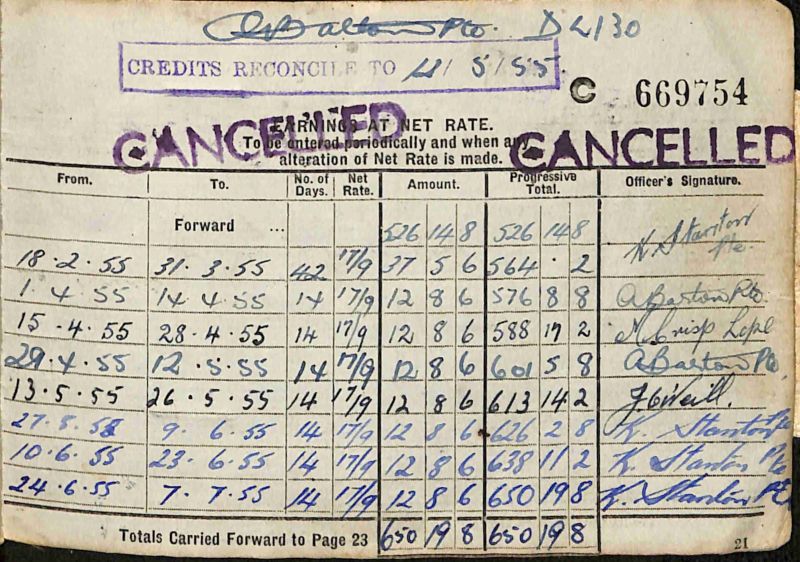 A Barton Pte.
CREDITS RECONCILE TO 4/5/55.
C 669754
CANCELLED CANCELLED
EARNINGS AT NET RATE.
To be entered periodically and when any
alteration of Net Rate is made.
From. To. No. of Days. Net Rate. Amount. Progressive Total. Officer's Signature.
Forward ... 526 14 8 526 14 8 K. Stanton Pte.
18.2.55 31.3.55 42 17/9 37 5 6 564 . 2
1 4 55 14 4.55 14 17/9 12 8 6 576 8 8 A Barton Pte.
15.4.55 28.4.55 14 17/9 12 8 6 588 17 2 M Crisp Lcpl
29.4.55 12.5.55 14 17/9 12 8 6 601 5 8 A Barton Pte
13.5.55 26.5.55 14 17/9 12 8 6 613 14 2 J. O'Neill.
27.5.55 9. 6.55 14 17/9 12 8 6 626 2 8 K Stanton Pte
10.6.55 23.6.55 14 17/9 12 8 6 638 11 2 K. Stanton Pte
24.6.55 7.7.55 14 17/9 12 8 6 650 19 8 K. Stanton Pte
Totals Carried Forward to Page 23 650 19 8 650 19 8
21